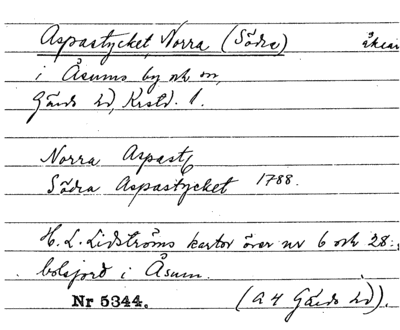 Aspastycket, Norra (Södra) åkrar
i Åsums by och sn,
Gärds hd, Krstd. l.
Norra Aspast
Södra Aspastycket 1788.
H. L. Lidströms kartor över nr 6 och 28:s
bolsjord i Åsum.
Nr 5344. (a 4 Gärds hd).